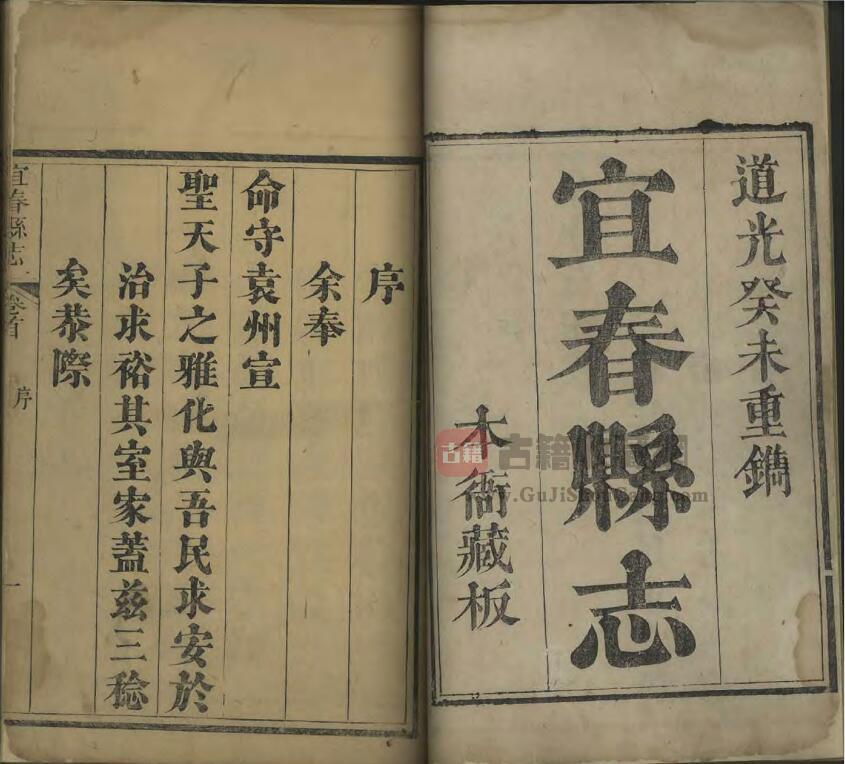 道光癸未重鐫
宜春縣志
本衙藏板
序
余奉
命守袁州宣
聖天子之雅化與吾民求安於
治求裕其室家蓋茲三稔
矣恭際
宜春縣志
卷首
序
一
古籍
www.GuJiShu